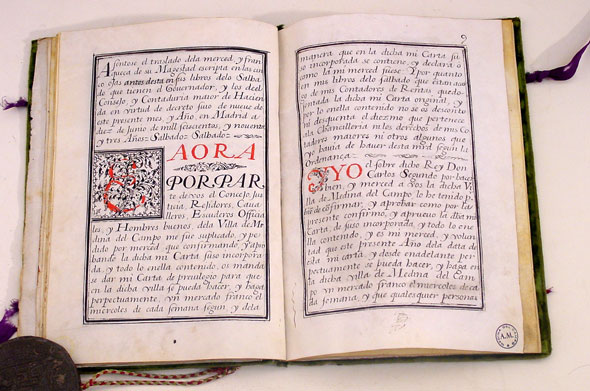 Asentose el traslado dela merced, y fran
queça de su Magestad escripta en las cinco
ojas antes desta en sus libros delo Salba
do que tienen el Governador, y los del
Consejo, y Contaduria maior de Hacien
da en virtud de decreto suio de nueve de
este presente mes, y Año, en Madrid a
diez de Junio de mill seiscientos, y noventa
y tres Años Salbado Salbado
E AORA
POR PAR
te de vos el Concejo, Jus
ticia Rejidores, Cava
lleros Escuderos Officia
les, y Hombres buenos, dela Villa de Me
dina del Campo me fue suplicado, y pe
dido por merced que confirmando y apro
bando la dicha mi Carta suso incorpora
da, y todo lo enella contenido, os manda
se dar mi Carta de privilegio para que
en la dicha villa se pueda hacer, y haga
perpetuamente, vn mercado franco el
miercoles de cada semana segun, y dela
9
manera que en la dicha mi Carta su
so incorporada se contiene, y declara o
como la mi merced fuese Y por quanto
en mis libros delo salbado que estan a car
go de mis Contadores de Rentas quedo a
sentada la dicha mi Carta original, y
por lo enella contenido no es de desconta
ni desquenta el diezmo que pertenece
la Chancilleria ni los derechos de mis Co
tadores maiores ni otros algunos que
yo havia de haver desta mrd segun la
Ordenança
E YO el sobre dicho Rey Don
Carlos Segundo por hacer
bien, y merced a Vos la dicha Vi
lla de Medina del Campo lo he tenido p
bien de confirmar, y aprobar como por la
presente confirmo, y apruevo la dha mi
Carta, de suso incorporada, y todo lo ene
lla contenido, y es mi merced, y volun
tad que este presente Año dela data de
esta mi carta, y desde enadelante per
petuamente se pueda hacer, y haga en
la dicha villa de Medina del Cam
po vn mercado franco el miercoles de ca
da semana, y que qualesquier personas
A.M.